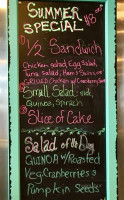 SUMMER
SPECIAL
1/2 Sandwich
Chicken salad, Egg Salad,
Tuna salad, Ham & Swiss or
Chicken w/ Cranberry
Small Salad:
Quinoa, Spinach
Slice of Cake
Salad of the Day
QUINOA w/ Roasted
Veg Cranberries &
Pumpkin Seeds